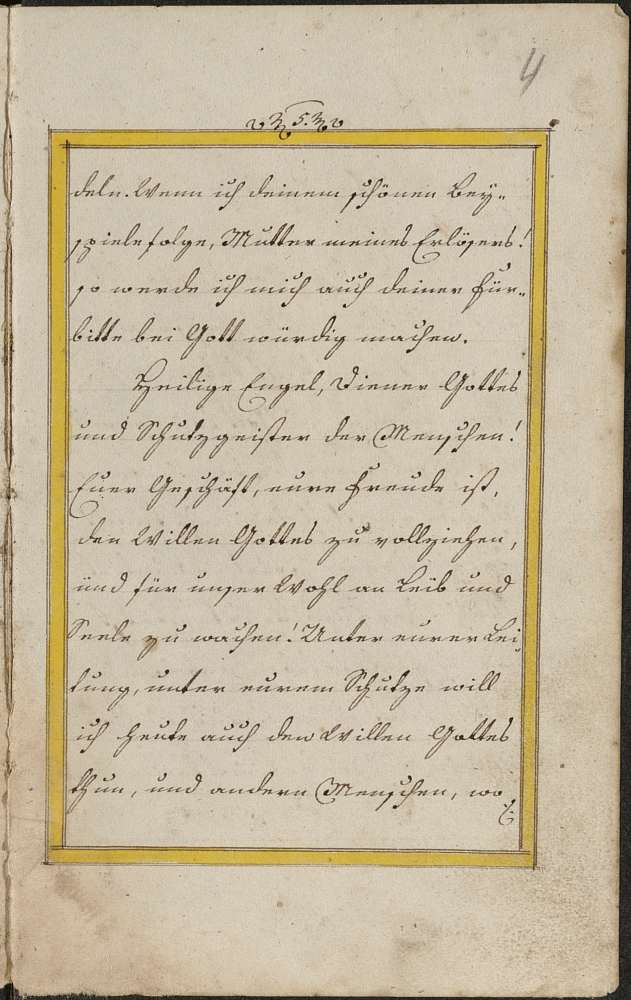 4
5.
deln. Wenn ich deinem schönen Bey-
spiele folge, Mutter meines Erlösers!
so werde ich mich auch deiner Für-
bitte bei Gott würdig machen.
Heilige Engel, Diener Gottes
und Schutzgeister der Menschen!
Euer Geschäft, eure Freude ist,
den Willen Gottes zu vollziehen,
und für unser Wohl an Leib und
Seele zu wachen! Unter eurer Lei-
tung, unter eurem Schutze will
ich heute auch den Willen Gottes
thun, und andern Menschen, wo